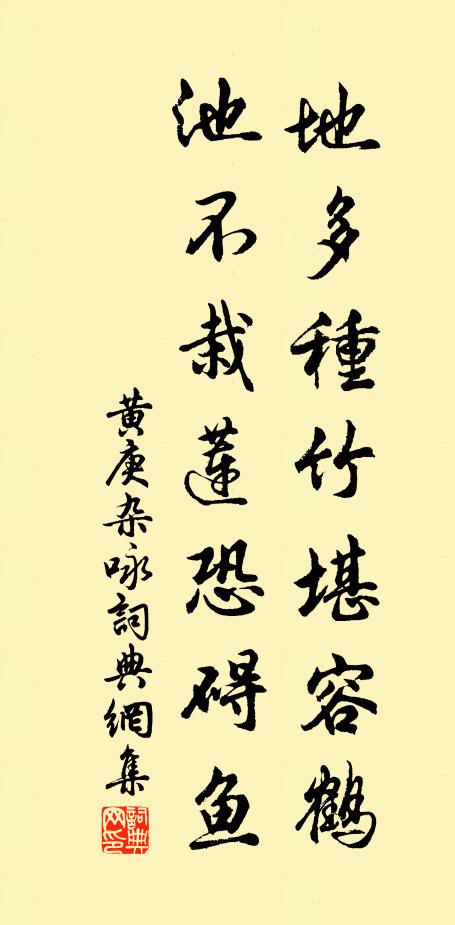 地多種竹堪容鶴
池不栽蓮恐碍鱼
黄庚杂咏詞典網集
詞典网印